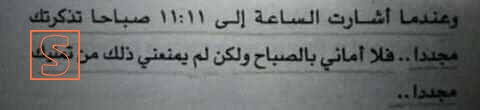 وعندما أشارت الساعة إلى ١١:١١ صباحا تذكرتك
مجددا.. فلا أماني بالصباح ولكن لم يمنعني ذلك من
مجددا..
S